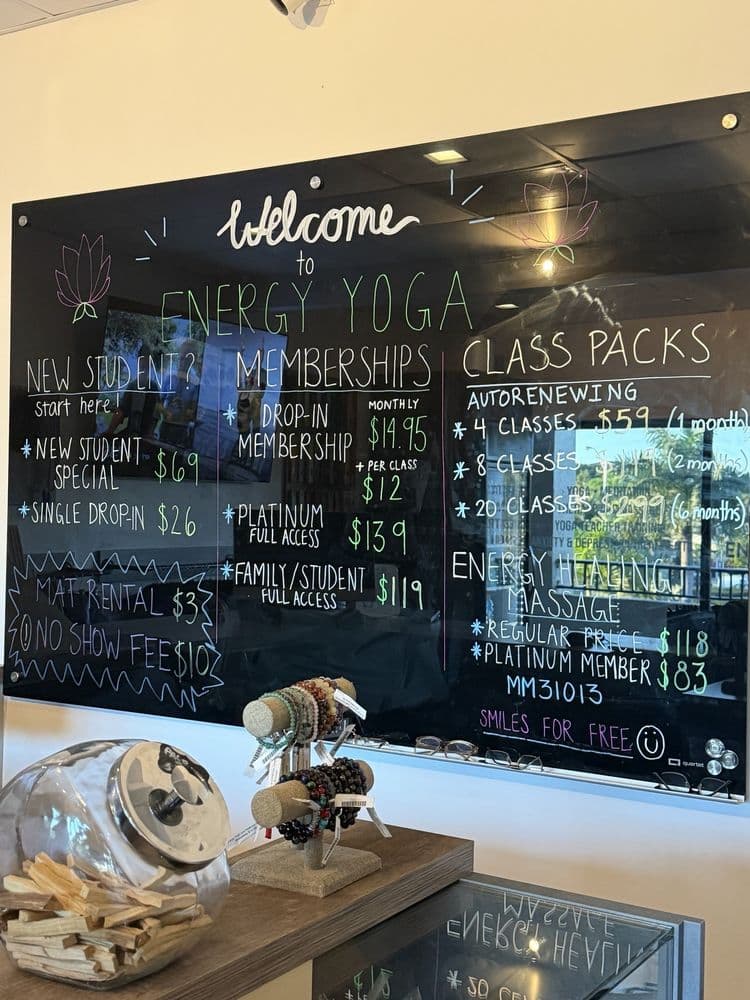 Welcome
to
ENERGY YOGA
NEW STUDENT?
start here!
* NEW STUDENT
SPECIAL $69
* SINGLE DROP-IN $26
MAT RENTAL $3
! NO SHOW FEE $10
MEMBERSHIPS
MONTHLY
* DROP-IN
MEMBERSHIP $14.95
+ PER CLASS
$12
* PLATINUM
FULL ACCESS $139
* FAMILY/STUDENT
FULL ACCESS $119
CLASS PACKS
AUTORENEWING
* 4 CLASSES $59 (1 month)
* 8 CLASSES $119 (2 months)
* 20 CLASSES $299 (6 months)
ENERGY HEALING
MASSAGE
* REGULAR PRICE $118
* PLATINUM MEMBER $83
MM31013
SMILES FOR FREE
quartet